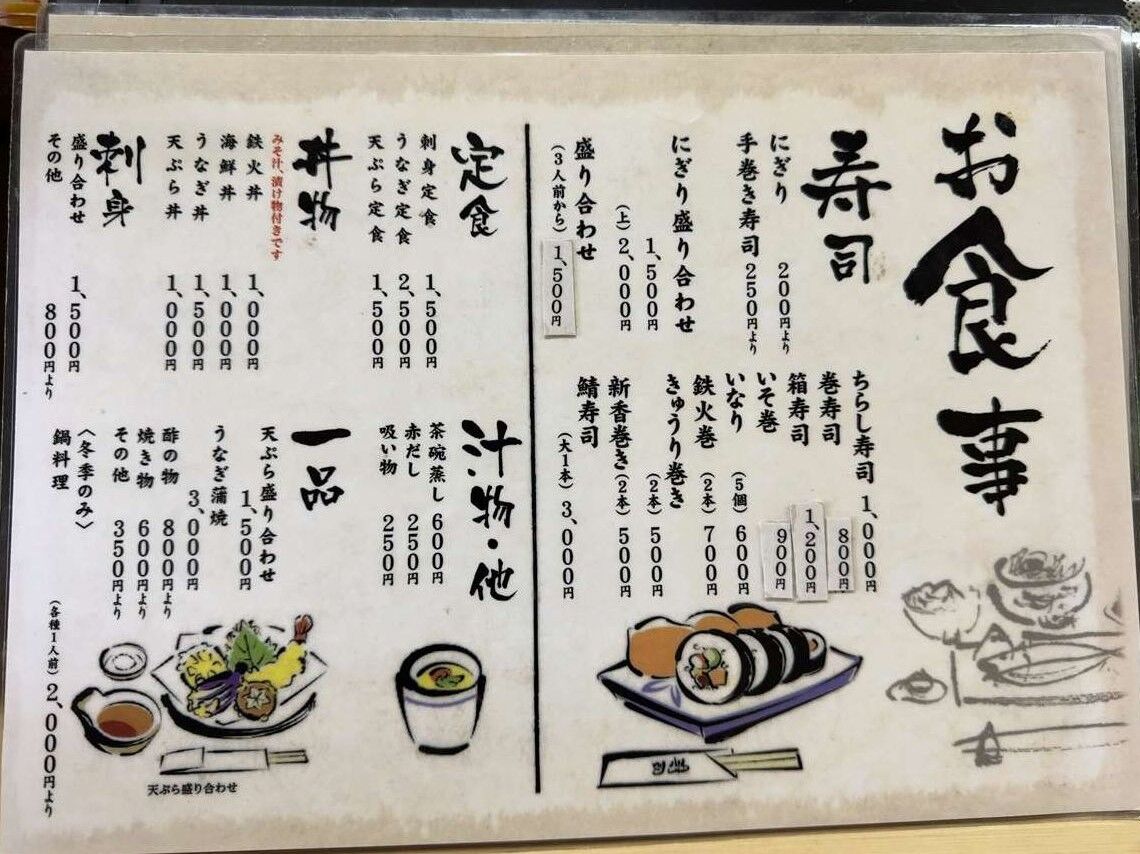 お食事
寿司
にぎり 200円より
手巻き寿司 250円より
にぎり盛り合わせ
1,500円
(上) 2,000円
盛り合わせ
(3人前から) 1,500円
ちらし寿司 1,000円
巻寿司 800円
箱寿司 1,200円
いそ巻 900円
いなり (5個) 600円
鉄火巻 (2本) 700円
きゅうり巻き
(2本) 500円
新香巻き(2本) 500円
鯖寿司
(大1本) 3,000円
定食
刺身定食 1,500円
うなぎ定食 2,500円
天ぷら定食 1,500円
丼物
みそ汁、漬け物付きです
鉄火丼 1,000円
海鮮丼 1,000円
うなぎ丼 1,500円
天ぷら丼 1,000円
刺身
盛り合わせ 1,500円
その他 800円より
汁物・他
茶碗蒸し 600円
赤だし 250円
吸い物 250円
一品
天ぷら盛り合わせ
1,500円
うなぎ蒲焼
3,000円
酢の物 800円より
焼き物 600円より
その他 350円より
〈冬季のみ〉
鍋料理
(各種1人前) 2,000円より
天ぷら盛り合わせ